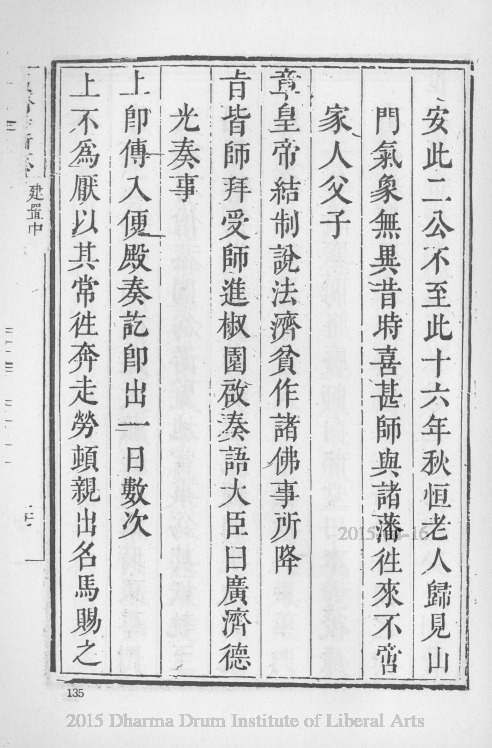 安此二公不至此十六年秋恒老人歸見山
門氣象無異昔時喜甚師與諸藩徃來不啻
家人父子
章皇帝結制說法濟貧作諸佛事所降
旨皆師拜受師進椒園啟奏語大臣曰廣濟德
光奏事
上卽傳入便殿奏訖卽出一日數次
上不為厭以其常徃奔走勞頓親出名馬賜之
建置中
135
2015 Dharma Drum Institute of Liberal Arts